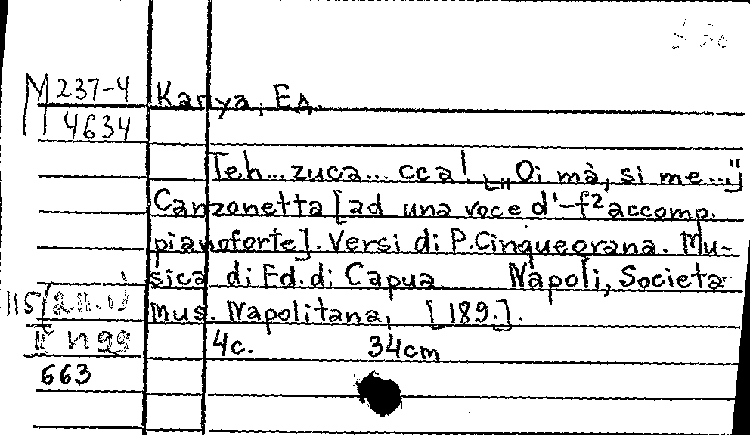 M 237-4
4634
Kanya, Ed.
Teh... zuca... cca! ["Oi mà, si me..."]
Canzonetta [ad una voce d'-f² accomp.
pianoforte]. Versi di P. Cinquegrana. Mu-
sica di Ed. di Capua Nàpoli, Societa
Mus. Napolitana, [189.].
4c. 34cm
115
II n 99
663